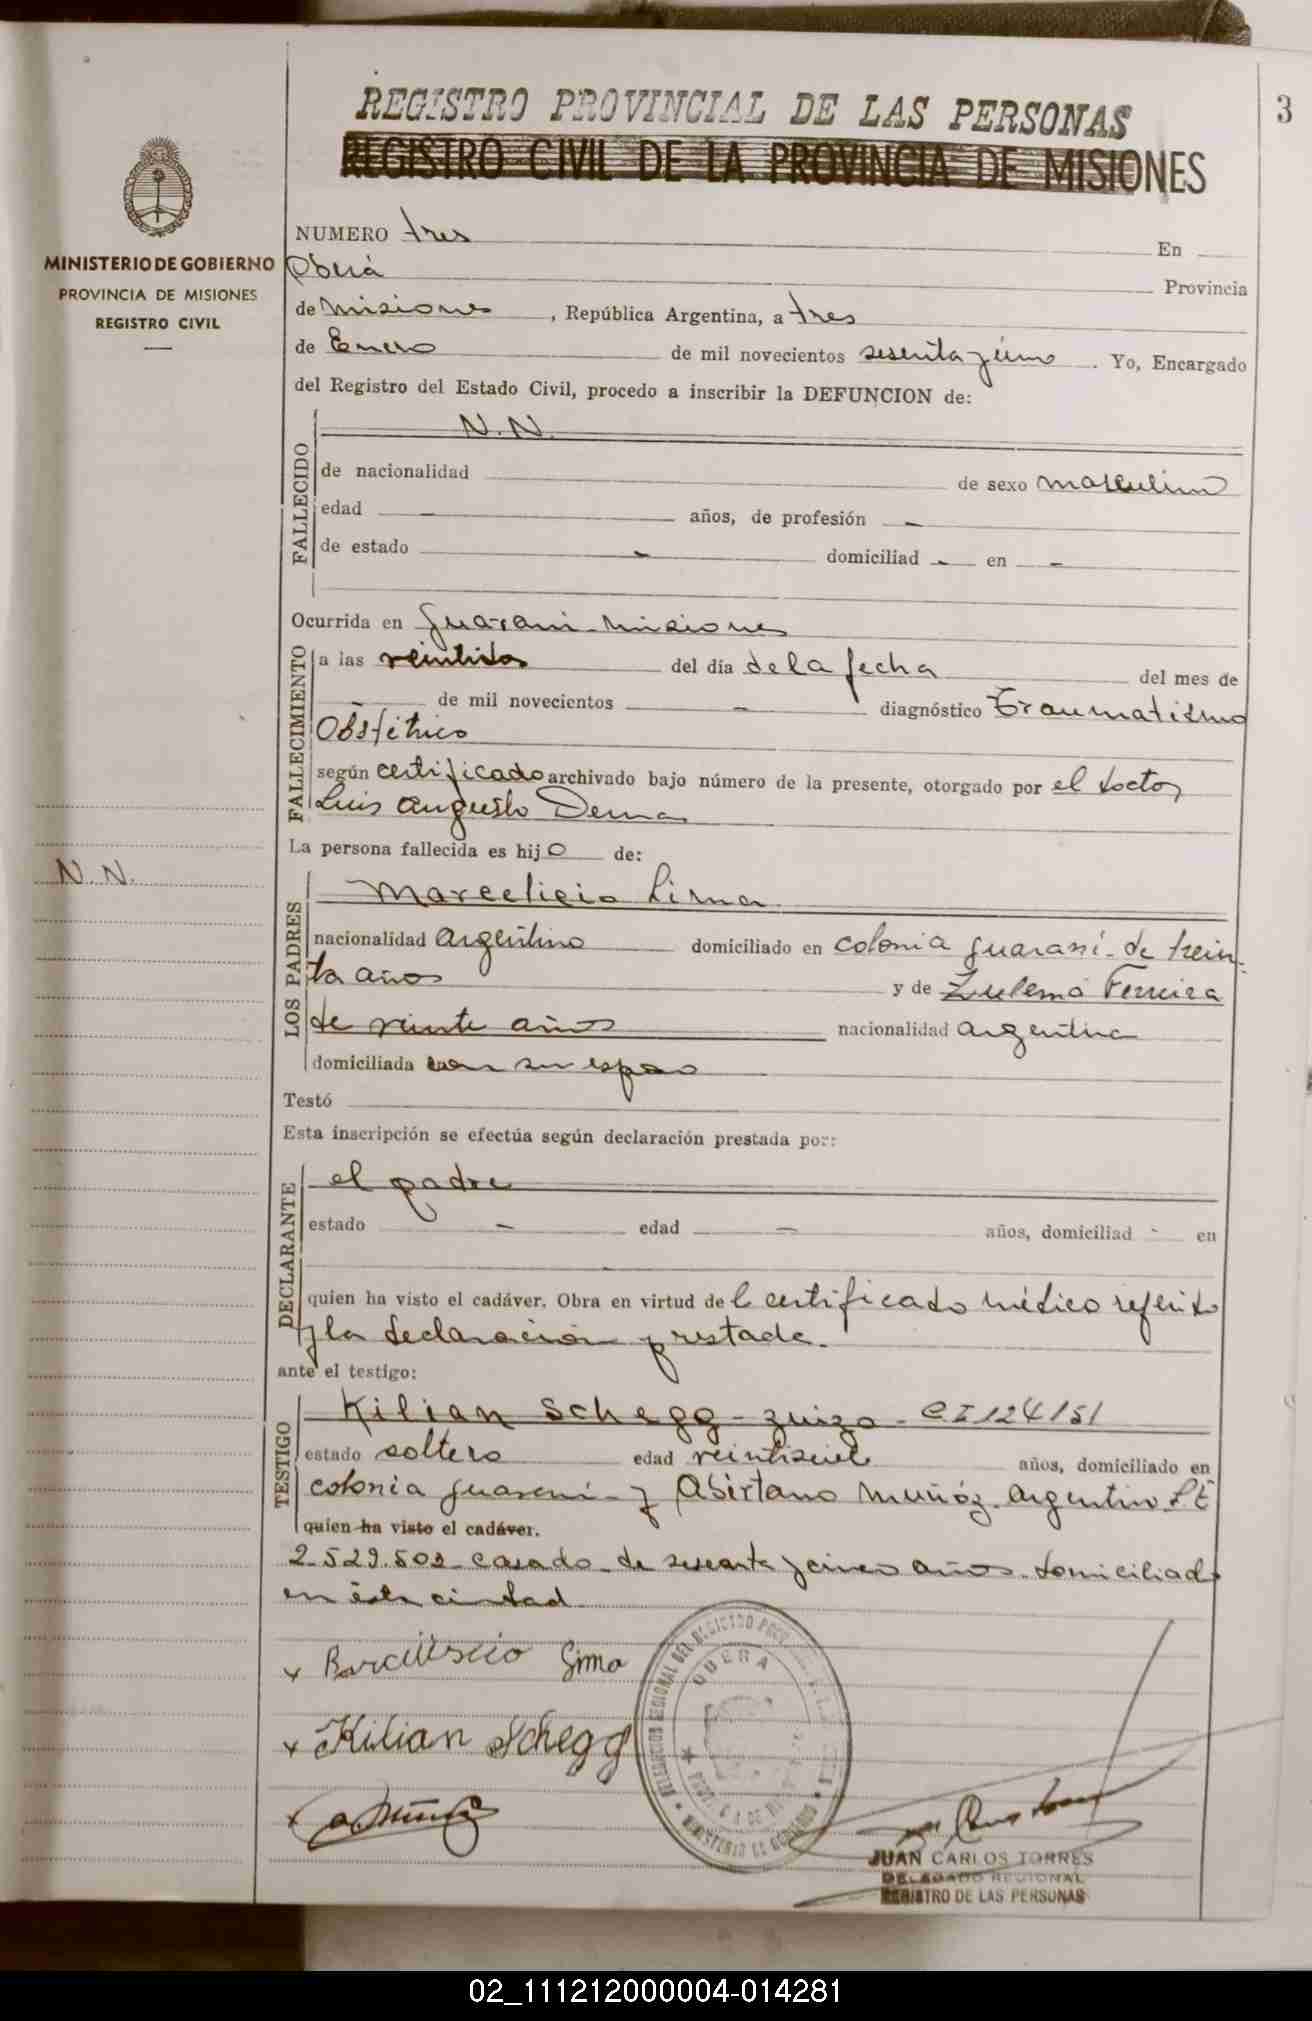 REGISTRO PROVINCIAL DE LAS PERSONAS
3
REGISTRO CIVIL DE LA PROVINCIA DE MISIONES
MINISTERIO DE GOBIERNO
PROVINCIA DE MISIONES
REGISTRO CIVIL
NUMERO tres En
Oberá Provincia
de Misiones, República Argentina, a tres
de Enero de mil novecientos sesenta y uno. Yo, Encargado
del Registro del Estado Civil, procedo a inscribir la DEFUNCION de:
FALLECIDO
N.N.
de nacionalidad de sexo masculino
edad - años, de profesión -
de estado - domiciliad - en -
Ocurrida en Guaraní - Misiones
FALLECIMIENTO
a las veintidos del día de la fecha del mes de
- de mil novecientos - diagnóstico Traumatismo
Obstétrico
según certificado archivado bajo número de la presente, otorgado por el doctor
Luis Augusto Derna
La persona fallecida es hijo de:
N.N.
LOS PADRES
Marcelicio Lima
nacionalidad argentino domiciliado en colonia guaraní - de trein-
ta años y de Zulema Ferreira
de veinte años nacionalidad argentina
domiciliada con su esposo
Testó
Esta inscripción se efectúa según declaración prestada por:
DECLARANTE
el padre
estado - edad - años, domiciliad - en
quien ha visto el cadáver. Obra en virtud del certificado médico referido
y la declaración prestada.
ante el testigo:
TESTIGO
Kilian Schegg - zuizo - CI 124151
estado soltero edad veintisiete años, domiciliado en
colonia guaraní - y Abirtano Muñóz - argentino LE
quien ha visto el cadáver.
2.529.502 casado - de sesenta y cinco años - domiciliado
en ésta ciudad
x Lima
x Kilian Schegg
x Muñóz
DELEGACION REGIONAL DEL REGISTRO
OBERA
MINISTERIO DE GOBIERNO
JUAN CARLOS TORRES
DELEGADO REGIONAL
REGISTRO DE LAS PERSONAS
02_111212000004-014281